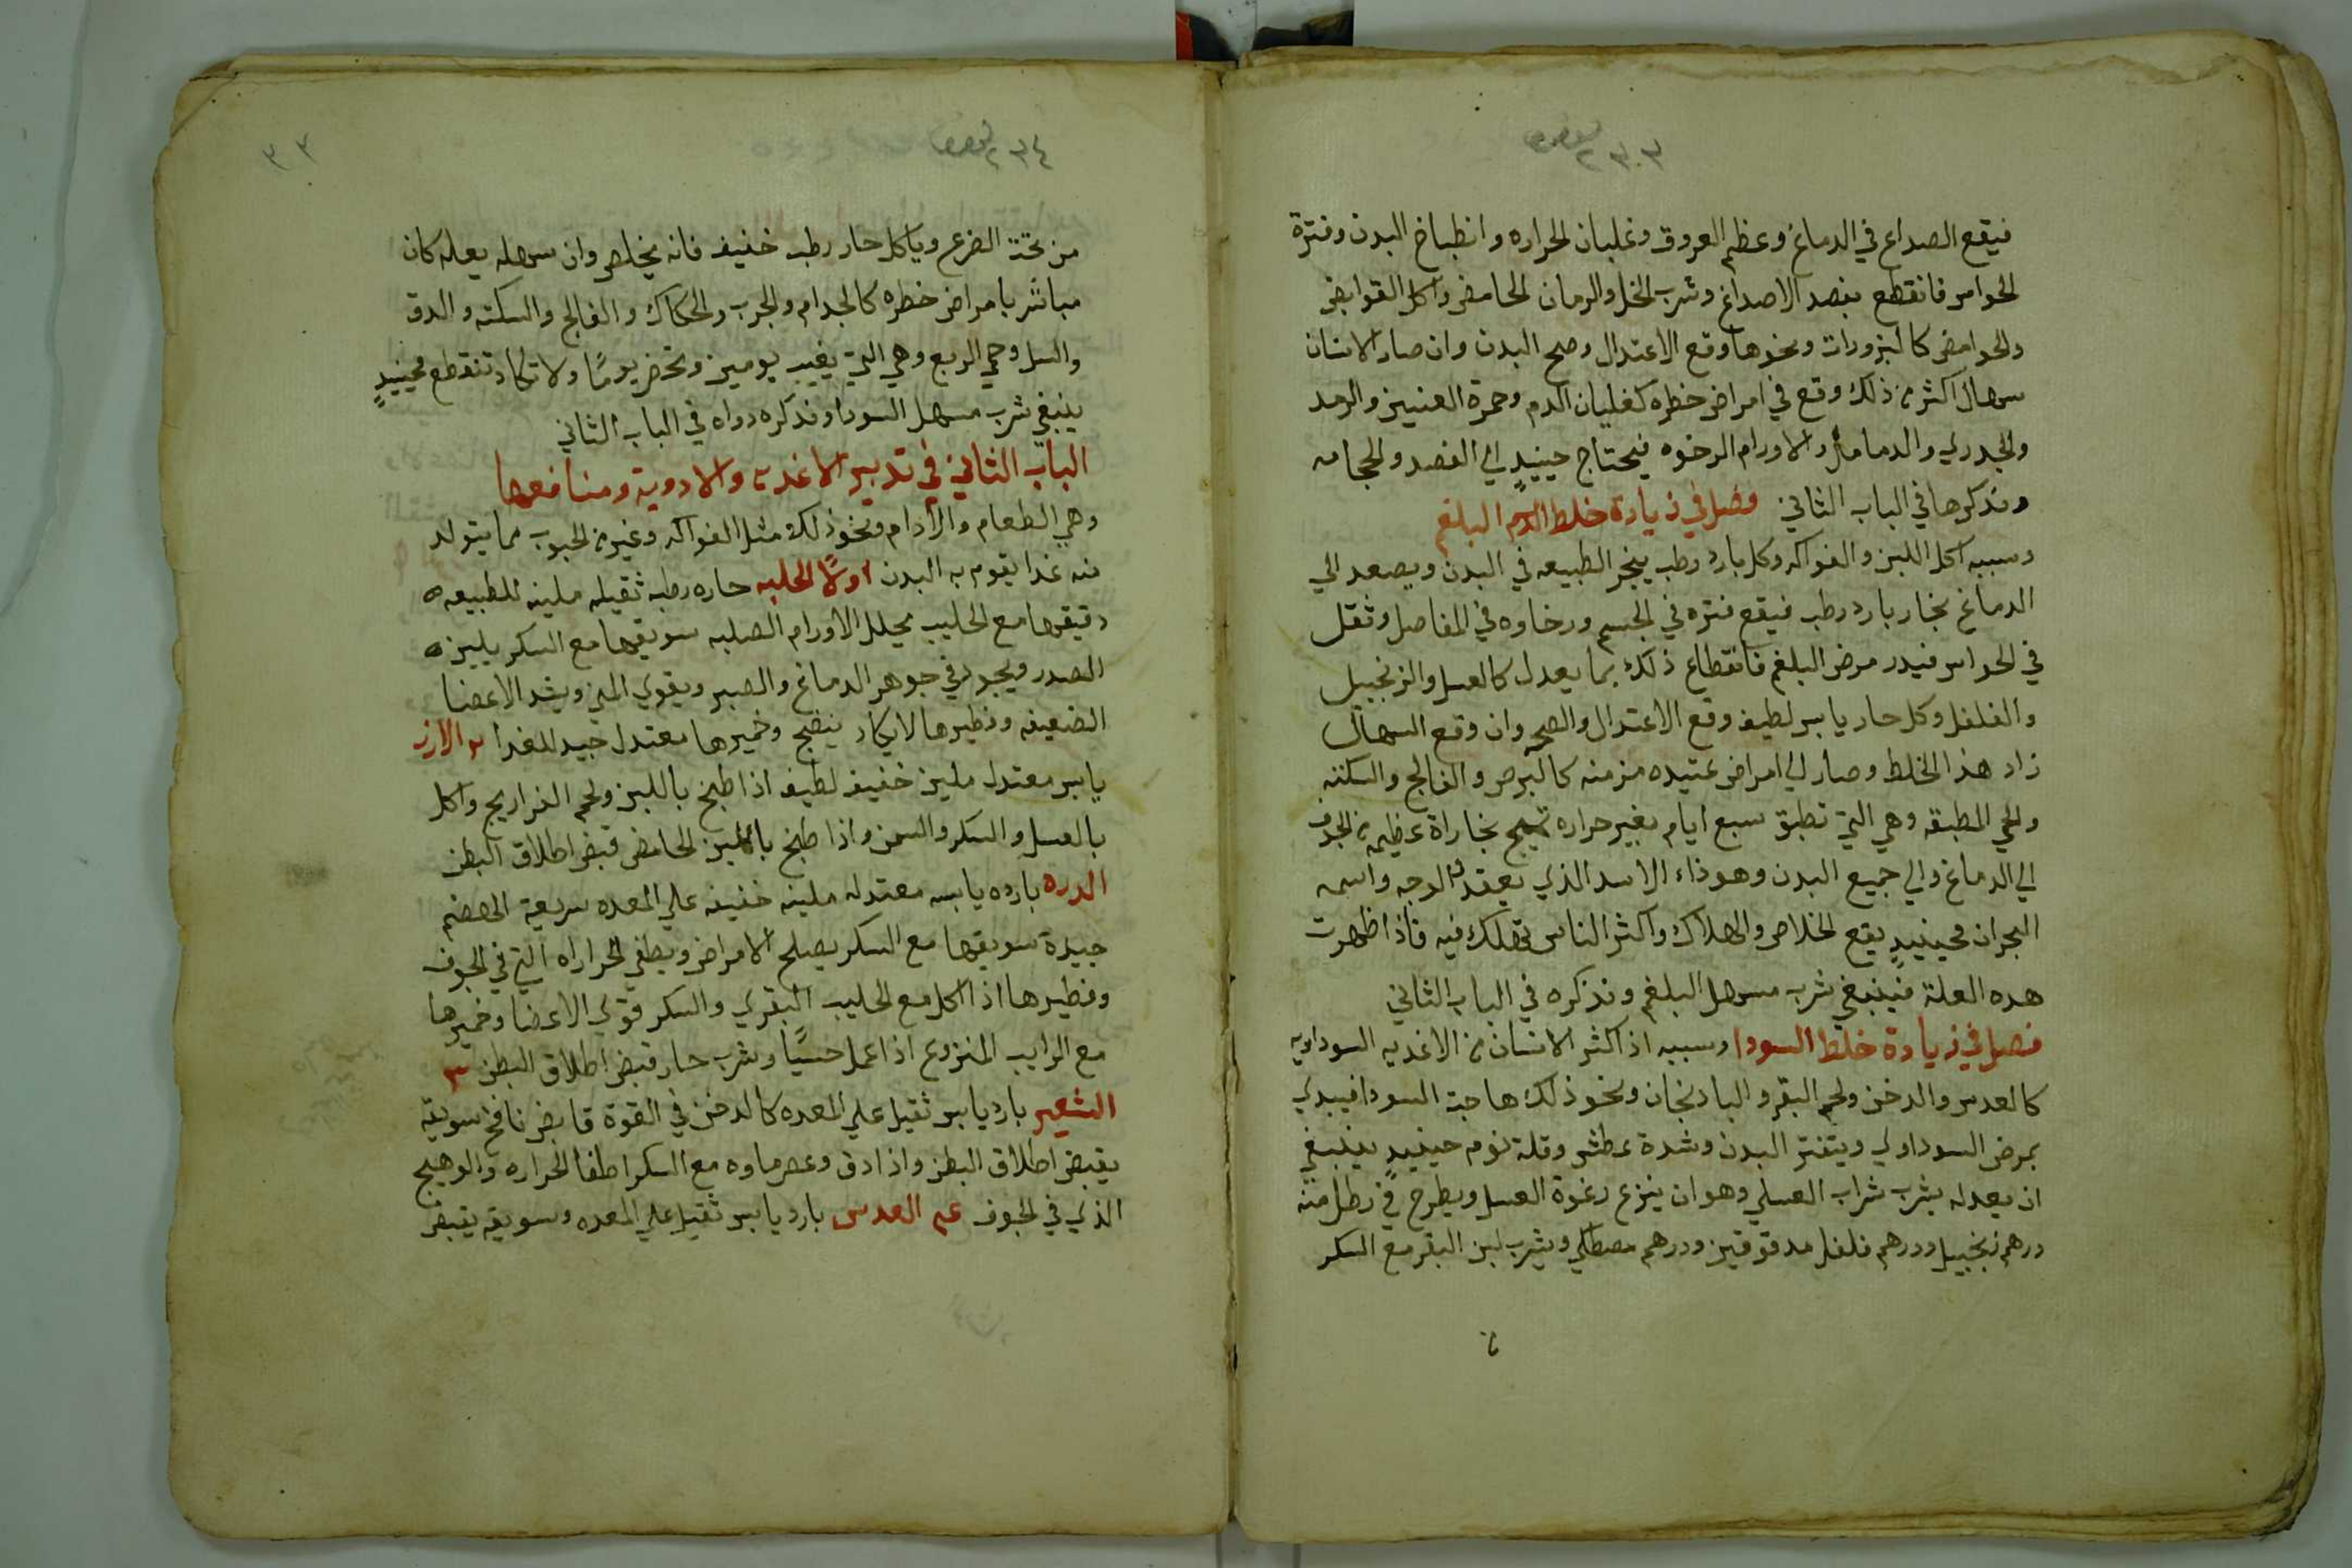 فيقع الصداع في الدماغ وعظم العروق وغليان الحراره وانطباخ البدن وفترة
الحواس فانقطع بفصد الاصداغ وشرب الخل والرمان الحامض واكل القوابض
والحوامض كالبزورات ونحوها وقع الاعتدال وصح البدن وان صار الانسان
سهال اكثر من ذلك وقع في امراض خطره كغليان الدم وحمرة العنيين والرمد
والجدري والدمامل والاورام الرخوه فيحتاج حينيدٍ الي الفصد والحجامه
ونذكرها في الباب الثاني فصل في زيادة خلط الدم البلغم
وسببه اكل اللبن والفواكه وكل بارد رطب ينجر الطبيعه في البدن ويصعد الي
الدماغ بخار بارد رطب فيقع فتره في الجسم ورخاوه في المفاصل وثقل
في الحواس فيدر مرض البلغم فانقطاع ذلك بما يعدل كالعسل والزنجبيل
والفلفل وكل حار يابس لطيف وقع الاعتدال والصحه وان وقع السهال
زاد هذا الخلط وصار الي امراض عتيده مزمنه كالبرص والفالج والسكته
والحمي المطبقه وهي التي تطبق سبع ايام بغير حراره تهيج بخاراة عظيمه من الجوف
الي الدماغ والي جميع البدن وهو ذاء الاسد الذي يعقد الوجه واسمه
البحران فحينيدٍ يقع الخلاص والهلاك واكثر الناس تهلك فيه فاذا ظهرت
هده العلة فينبغي شرب مسهل البلغم ونذكره في الباب الثاني
فصل في زيادة خلط السودا وسببه اذ اكثر الانسان من الاغديه السوداويه
كالعدس والدخن ولحم البقر والبادنجان ونحو ذلك هاجت السودا فيبدي
بمرض السوداوي ويتفتر البدن وشدة عطش وقلة نوم حينيدٍ ينبغي
ان يعدله بشرب شراب العسلي وهو ان ينزع رغوة العسل ويطرح في رطل منه
درهم زنجبيل ودرهم فلفل مدقوقين ودرهم مصطكي ويشرب لبن البقر مع السكر
٢٣٤
٣٣
من تحت الضرع وياكل حار رطب خفيف فانه يخلص وان سهله بعله كان
مباشر بامراض خطره كالجدام والجرب والحكاك والفالج والسكته والدق
والسل وحمي الربع وهي التي يغيب يومين وتحضر يومًا ولا تكاد تنقطع فحينيدٍ
ينبغي شرب مسهل السودا ونذكره دواه في الباب الثاني
الباب الثاني في تدبير الاغديه والادوية ومنافعها
وهي الطعام والادام ونحو ذلك مثل الفواكه وغير من الحبوب مما يتولد
منه غدا يقوم به البدن اولًا الحلبه حاره رطبه ثقيله ملينه للطبيعه
دقيقها مع الحليب يحلل الاورام الصلبه سويقها مع السكر يلين
الصدر ويجود في جوهر الدماغ والصبر ويقوي المني ويشد الاعضا
الضعيفه وفطيرها لايكاد ينضج وخميرها معتدل جيد للغدا ٢ الارز
يابس معتدل ملين خفيف لطيف اذا طبخ باللبن ولحم الفراريج واكل
بالعسل والسكر والسمن واذا طبخ باللبن الحامض قبض اطلاق البطن
الدره بارده يابسه معتدله ملينه خفيفه علي المعده سريعة الهضم
جيدة سويقها مع السكر يصلح الامراض ويطفي الحراراه التي في الجوف
وفطيرها اذا اكل مع الحليب البقري والسكر قوي الاعضا وخميرها
مع الرايب المنزوع اذا عمل حسيًا وشرب حار قبض اطلاق البطن ٣
الشعير بارد يابس ثقيل علي المعده كالدخن في القوة قابض نافخ سويقه
يقبض اطلاق البطن واذا دق وعصر ماوه مع السكر اطفا الحراره والوهيج
الذي في الجوف ٤ العدس بارد يابس ثقيل علي المعده وسويقه يقبض